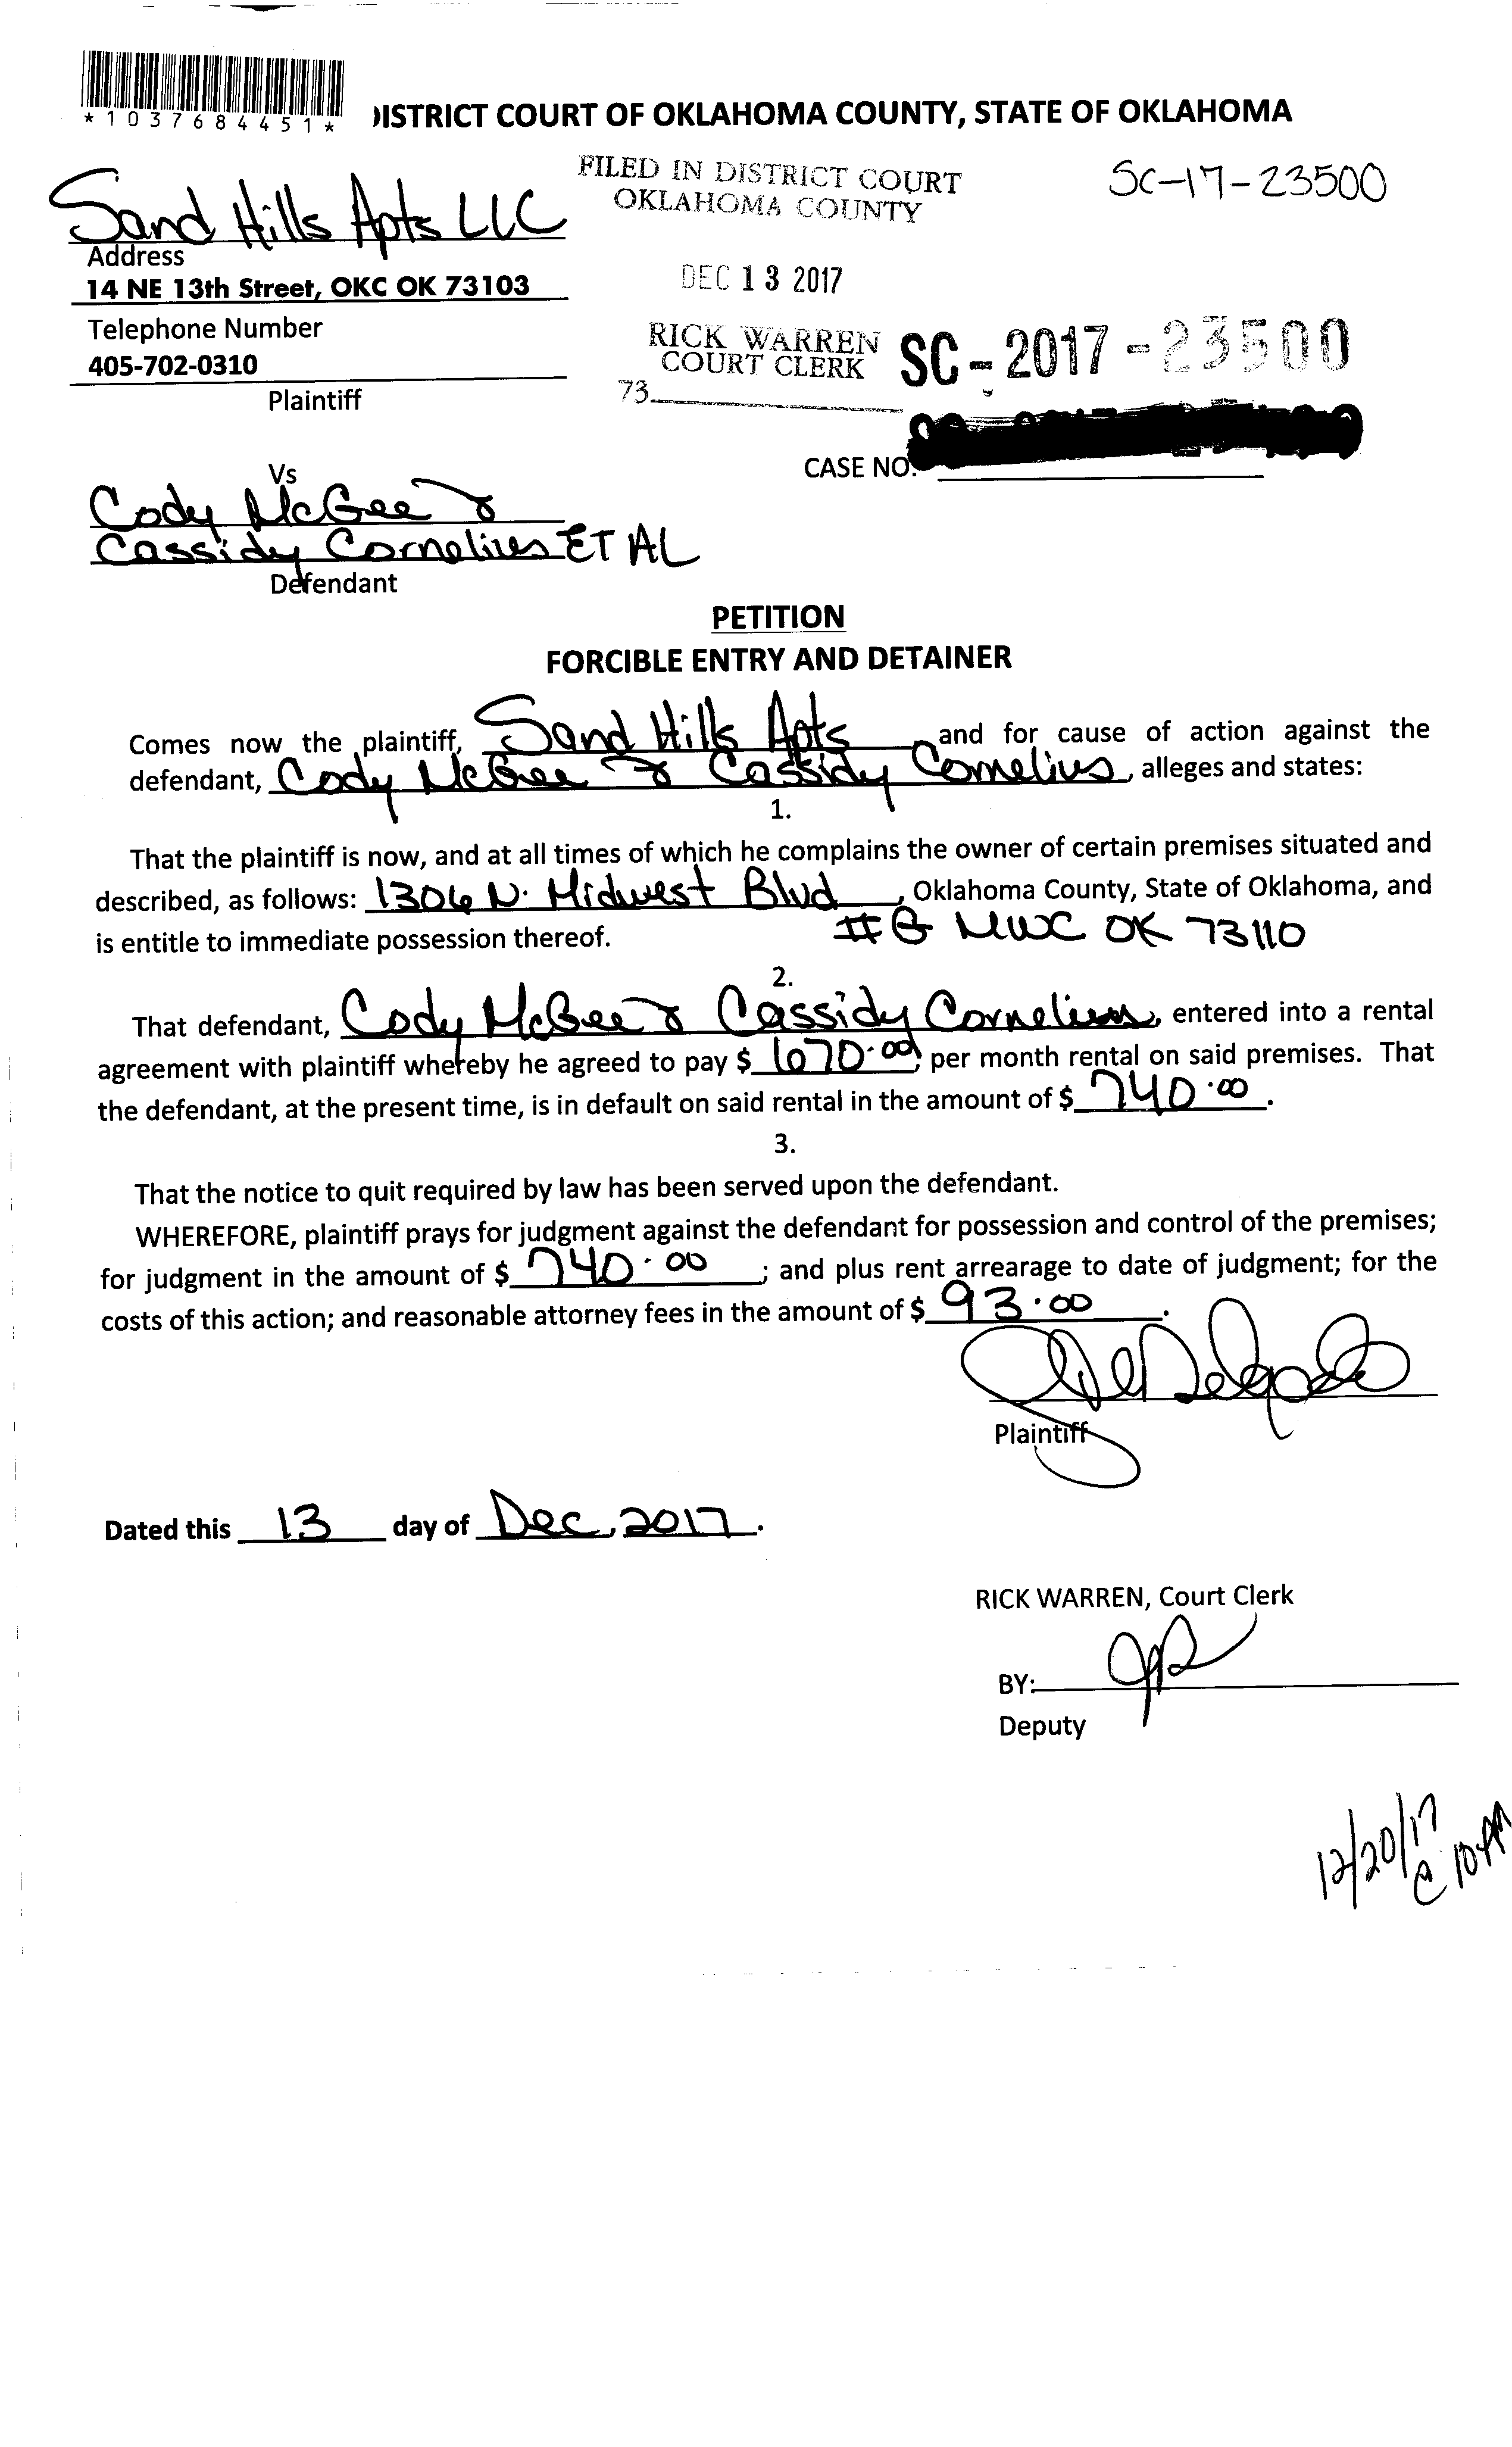 *1037684451*
DISTRICT COURT OF OKLAHOMA COUNTY, STATE OF OKLAHOMA
FILED IN DISTRICT COURT
OKLAHOMA COUNTY
SC-17-23500
Sand Hills Apts LLC
Address
14 NE 13th Street, OKC OK 73103
DEC 13 2017
Telephone Number
405-702-0310
RICK WARREN
COURT CLERK
SC-2017-23500
Plaintiff
73
CASE NO.
Vs
Cody McGee &
Cassidy Cornelius ET AL
Defendant
PETITION
FORCIBLE ENTRY AND DETAINER
Comes now the plaintiff, Sand Hills Apts and for cause of action against the
defendant, Cody McGee & Cassidy Cornelius, alleges and states:
1.
That the plaintiff is now, and at all times of which he complains the owner of certain premises situated and
described, as follows: 1306 N. Midwest Blvd, Oklahoma County, State of Oklahoma, and
is entitle to immediate possession thereof. #G MWC OK 73110
2.
That defendant, Cody McGee & Cassidy Cornelius, entered into a rental
agreement with plaintiff whereby he agreed to pay $ 670.00, per month rental on said premises. That
the defendant, at the present time, is in default on said rental in the amount of $ 740.00.
3.
That the notice to quit required by law has been served upon the defendant.
WHEREFORE, plaintiff prays for judgment against the defendant for possession and control of the premises;
for judgment in the amount of $ 740.00; and plus rent arrearage to date of judgment; for the
costs of this action; and reasonable attorney fees in the amount of $ 93.00.
Delgado
Plaintiff
Dated this 13 day of Dec, 2017.
RICK WARREN, Court Clerk
BY:
Deputy
12/20/17
@ 10 AM